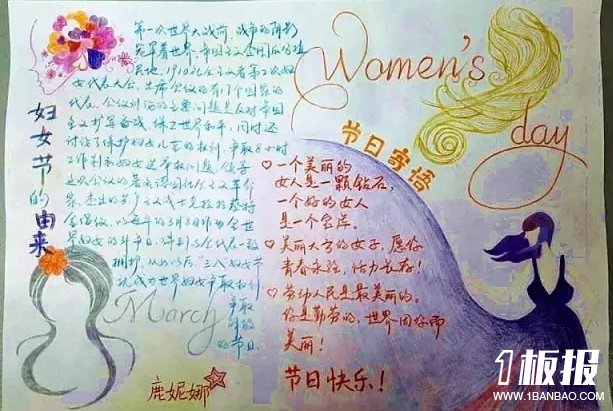 妇女节的由来
第一次世界大战前,战争的阴影
笼罩着世界,帝国主义企图瓜分殖
民地,1910
女代表大会,出席会议的有17个国家的
代表,会议讨论的主要问题是反对帝国
主义扩军备战,保卫世界和平,同时还
讨论了保护妇女儿童的权利,争取8小时
工作制和妇女选举权问题,领导
这次会议的著名德国社会主义革命
家,杰出的
会倡议,以每年的3月8日作为全世
界妇女的斗争日,得到与会代表一致
拥护,从此以后"三八"妇女节
就成为世界妇女争取权利
争取
的节日.
March
鹿妮娜
Women's
day
节日寄语
一个美丽的
女人是一颗钻石,
一个好的女人
是一个宝库。
美丽大方的女子,愿你
青春永驻,活力长存!
劳动人民是最美丽的。
你是勤劳的,世界因你而
美丽!
节日快乐!
1板报
WWW.1BANBAO.COM